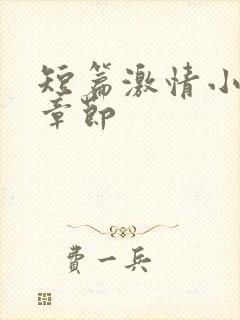 短篇激情小
章节
费一兵